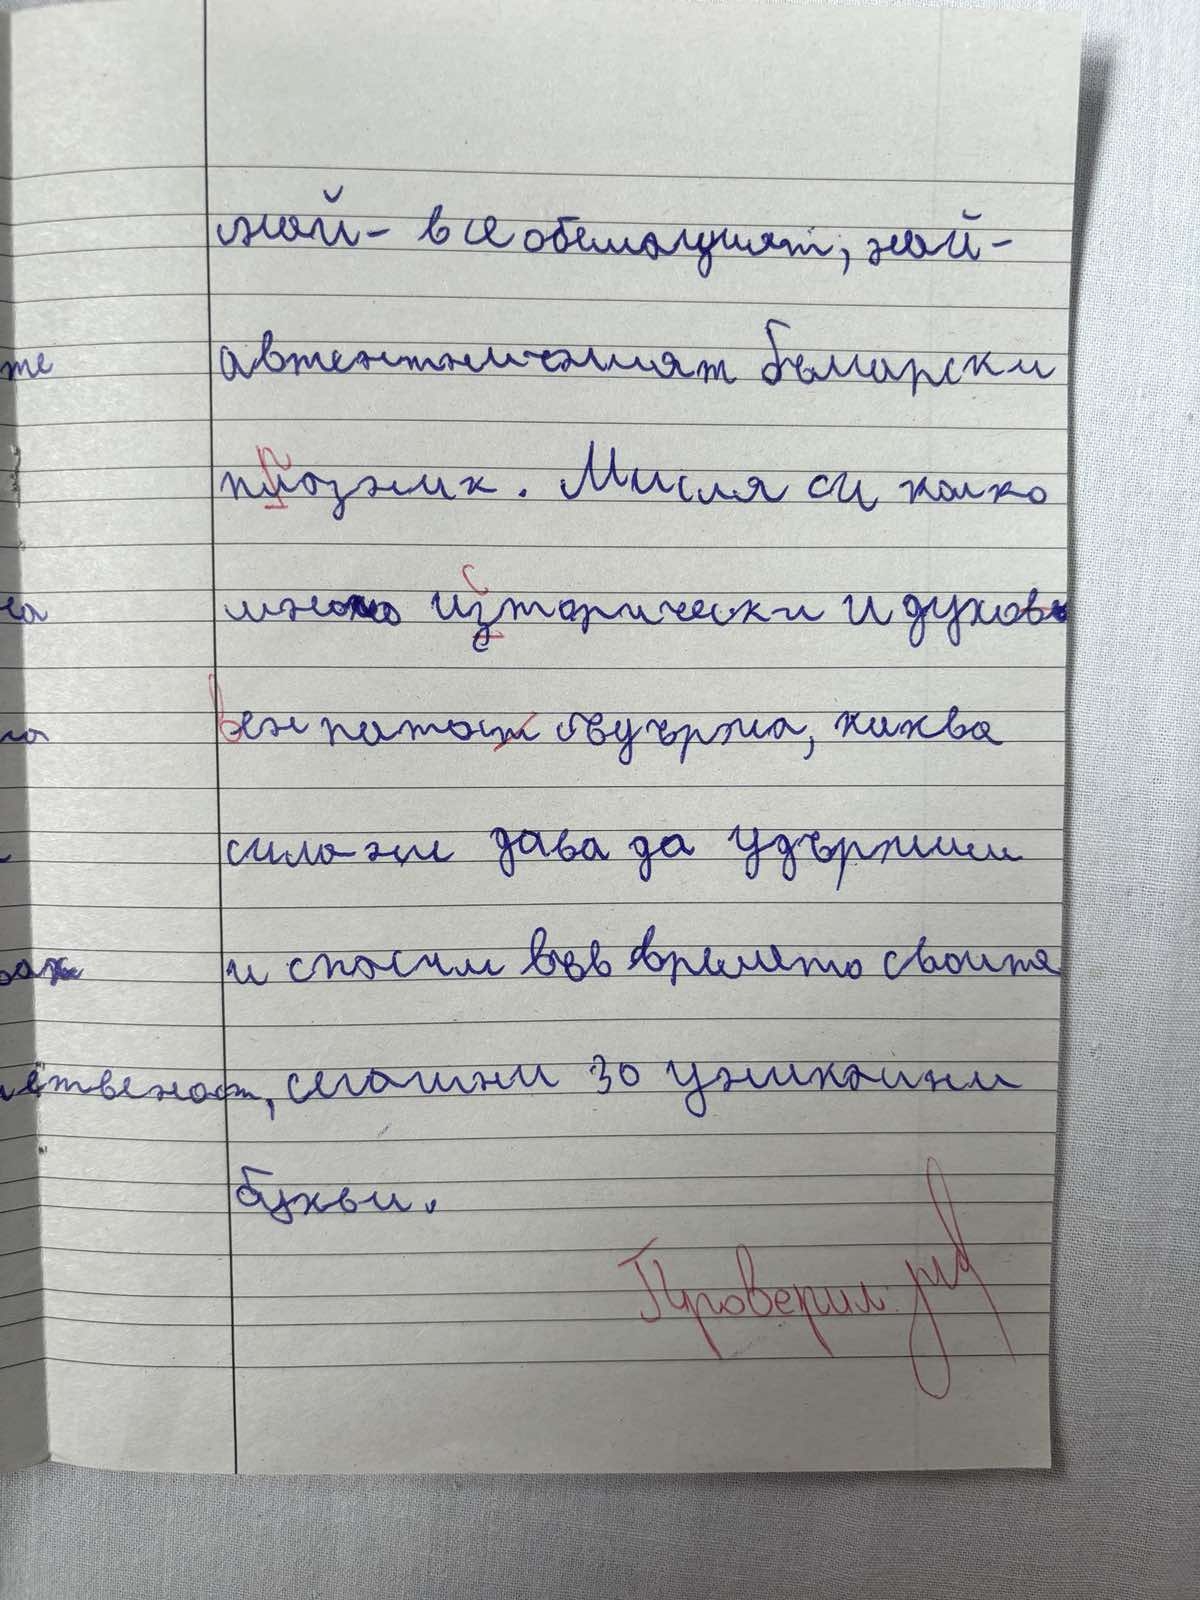 най-всеобемащият, най-
те автентичният български
празник. Мисля си колко
на много изторически и духов
вен потох съдържа, каква
сила ни дава да удържим
и спасим във времето своите
ственост, сегашни 30 уникални
букви.
Проверил: